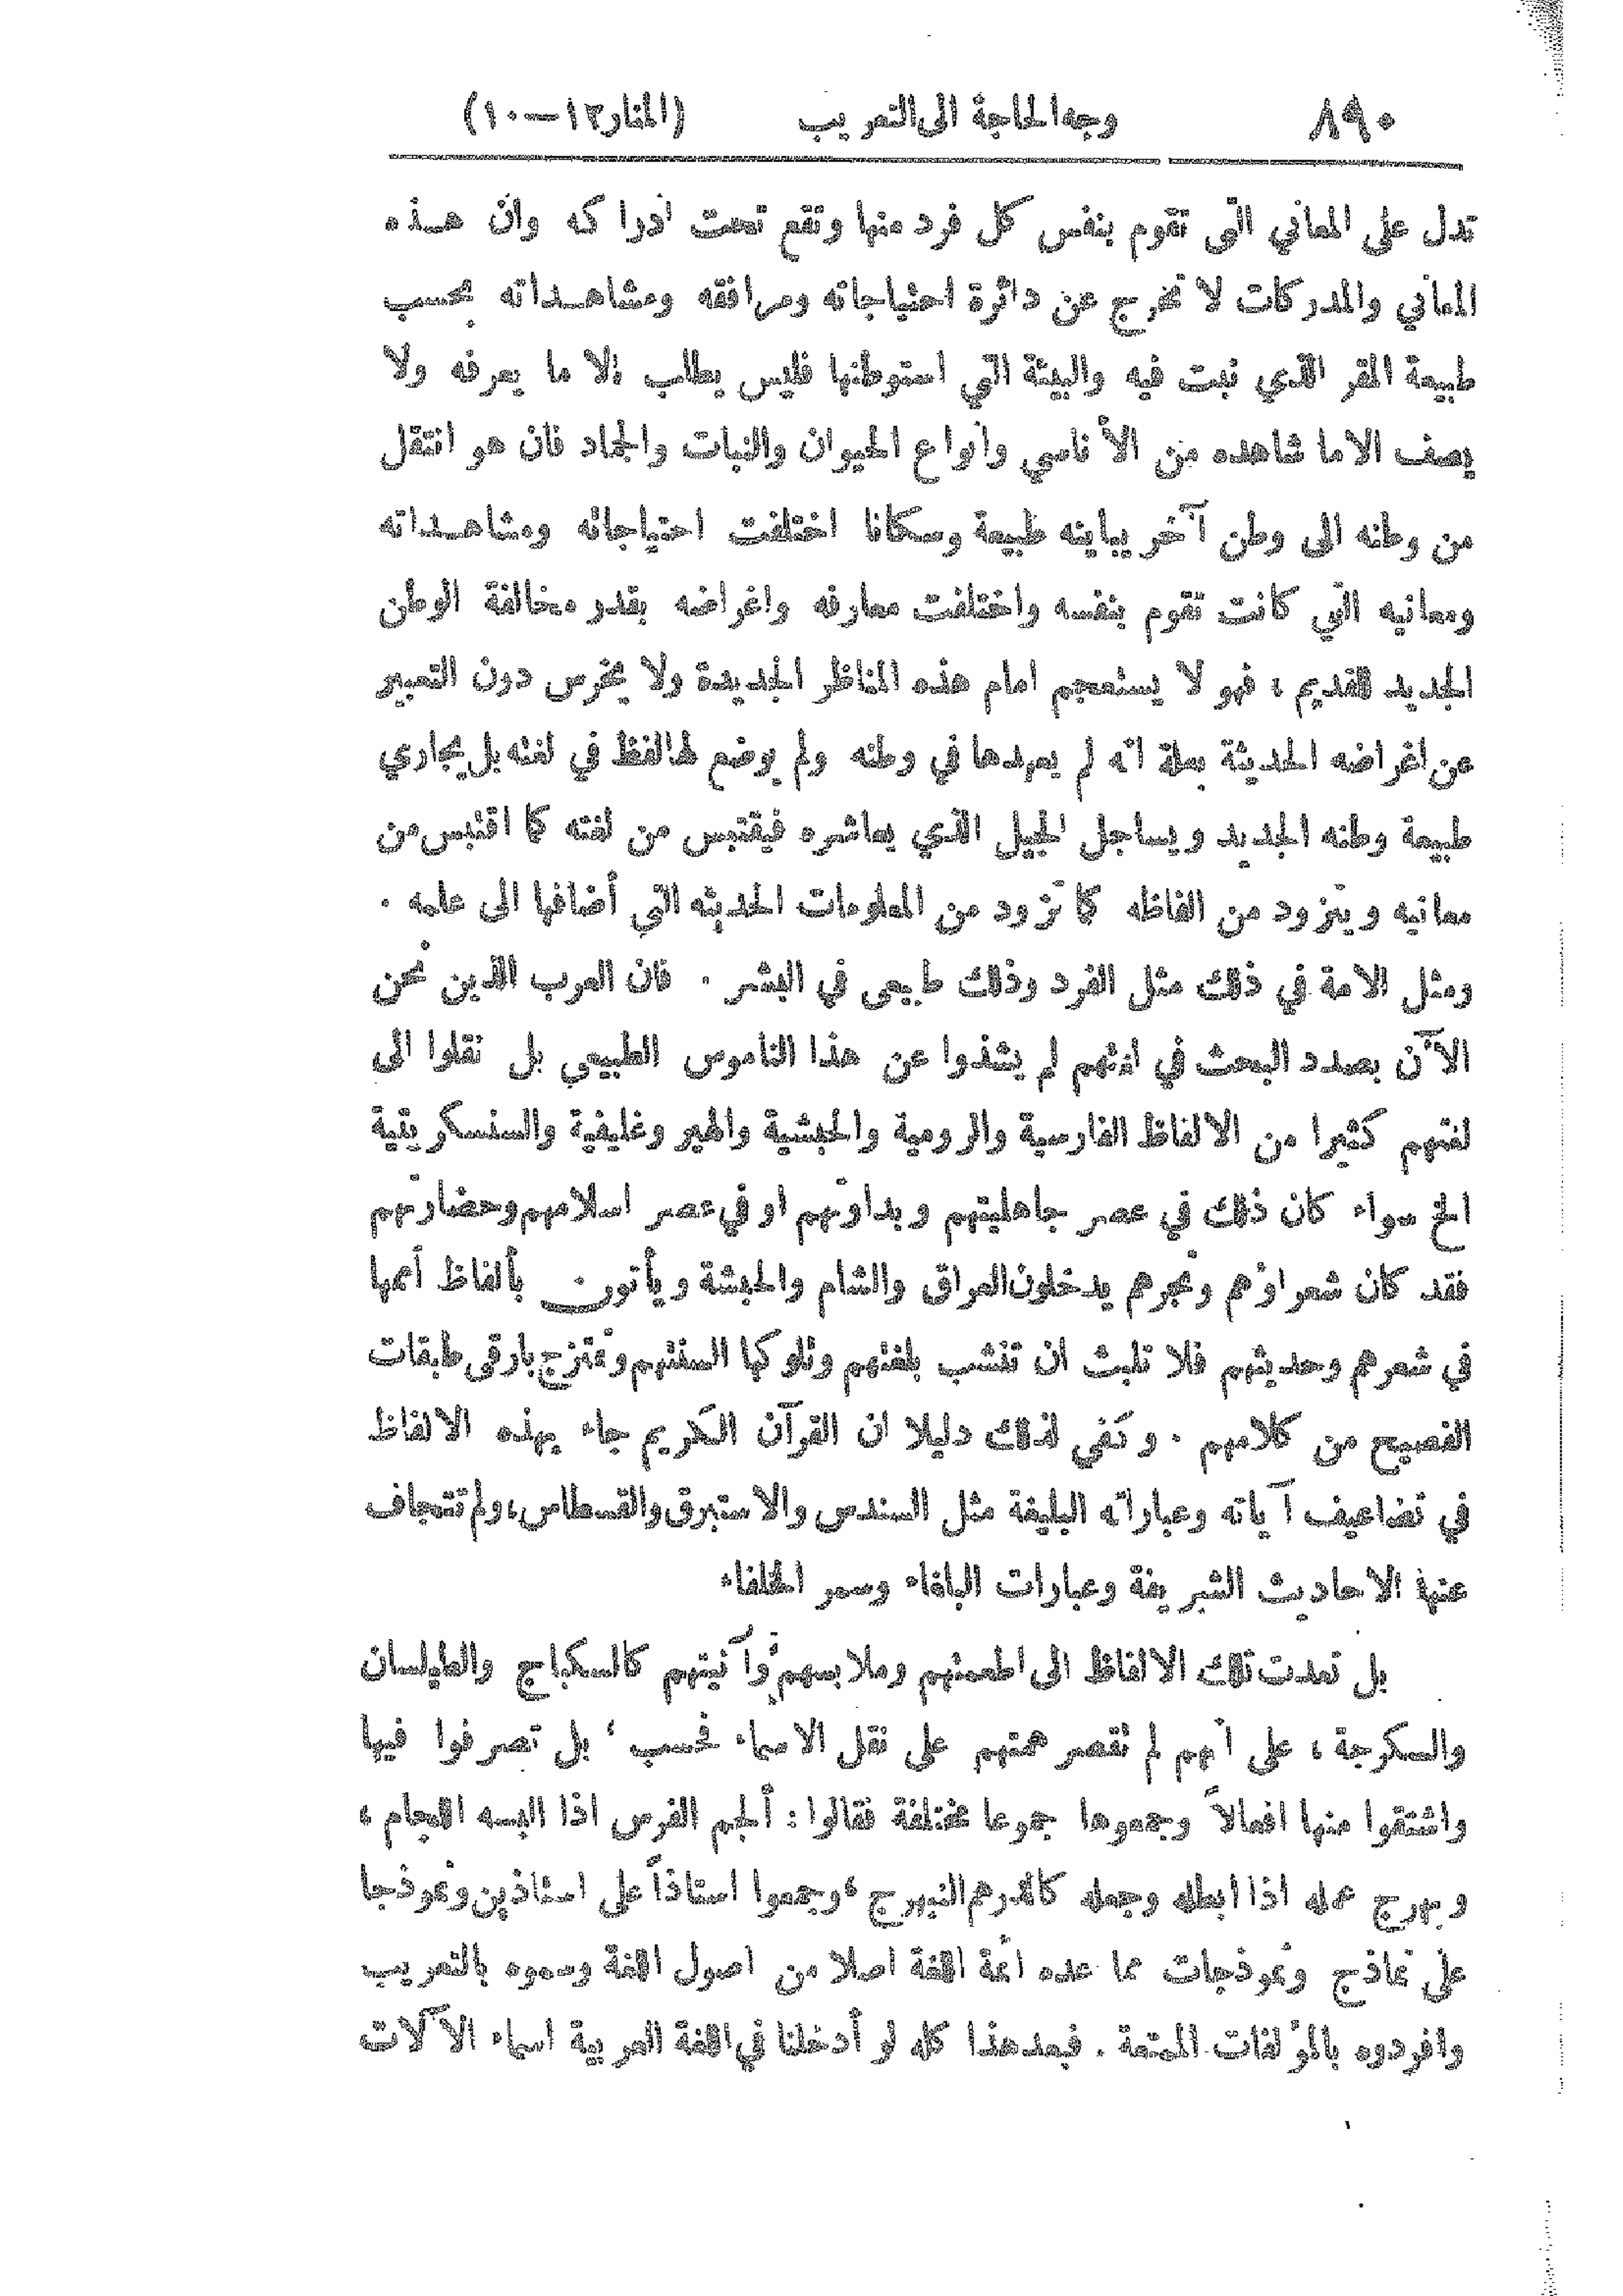 ٨٩٠ وجه الحاجة الى التعريب (المنار ١٢–١٠)
تدل على المعاني التى تقوم بنفس كل فرد منها وتقع تحت ادراكه وان هذه
المعاني والمدركات لا تخرج عن دائرة احتياجاته ومرافقه ومشاهداته بحسب
طبيعة المقر الذي نبت فيه والبيئة التي استوطنها فليس يطلب الا ما يعرفه ولا
يصف الا ما شاهده من الأناسي وانواع الحيوان والنبات والجماد فان هو انتقل
من وطنه الى وطن آخر يباينه طبيعة وسكانا اختلفت احتياجاته ومشاهداته
ومعانيه التي كانت تقوم بنفسه واختلفت معارفه واغراضه بقدر مخالفة الوطن
الجديد للقديم ، فهو لا يستعجم امام هذه المناظر الجديدة ولا يخرس دون التعبير
عن اغراضه الحديثة بعلة انه لم يعهدها في وطنه ولم يوضع لها لفظ في لغته بل يجاري
طبيعة وطنه الجديد ويساجل الجيل الذي يعاشره فيقتبس من لغته كما اقتبس من
معانيه ويتزود من الفاظه كما تزود من المعلومات الحديثه التي أضافها الى علمه .
ومثل الامة في ذلك مثل الفرد وذلك طبيعى في البشر . فان العرب الذين نحن
الآن بصدد البحث في لغتهم لم يشذوا عن هذا الناموس الطبيعي بل نقلوا الى
لغتهم كثيرا من الالفاظ الفارسية والرومية والحبشية والهيروغليفية والسنسكريتية
الخ سواء كان ذلك في عصر جاهليتهم وبداوتهم او في عصر اسلامهم وحضارتهم
فقد كان شعراؤهم وتجرهم يدخلون العراق والشام والحبشة ويأتون بألفاظ أممها
في شعرهم وحديثهم فلا تلبث ان تنشب بلغتهم وتلوكها السنتهم وتمتزج بارقى طبقات
الفصيح من كلامهم . وكفى لذلك دليلا ان القرآن الكريم جاء بهذه الالفاظ
في تضاعيف آياته وعباراته البليغة مثل السندس والاستبرق والقسطاس، ولم تتجاف
عنها الاحاديث الشريفة وعبارات البلغاء وسمر الخلفاء
بل تعدت تلك الالفاظ الى اطعمتهم وملابسهم وآنيتهم كالسكباج والطيلسان
والسكرجة ، على انهم لم تقصر همتهم على نقل الاسماء فحسب ، بل تصرفوا فيها
واشتقوا منها افعالاً وجمعوها جموعا مختلفة فقالوا : ألجم الفرس اذا البسه اللجام ،
وبهرج عمله اذا ابطله وجعله كالدرهم النبهرج ، وجمعوا استاذاً على استاذين ونموذجا
على نماذج ونموذجات مما عده ائمة اللغة اصلا من اصول اللغة وسموه بالتعريب
وافردوه بالمؤلفات الممتعة . فبعد هذا كله لو أدخلنا في اللغة العربية اسماء الآلات